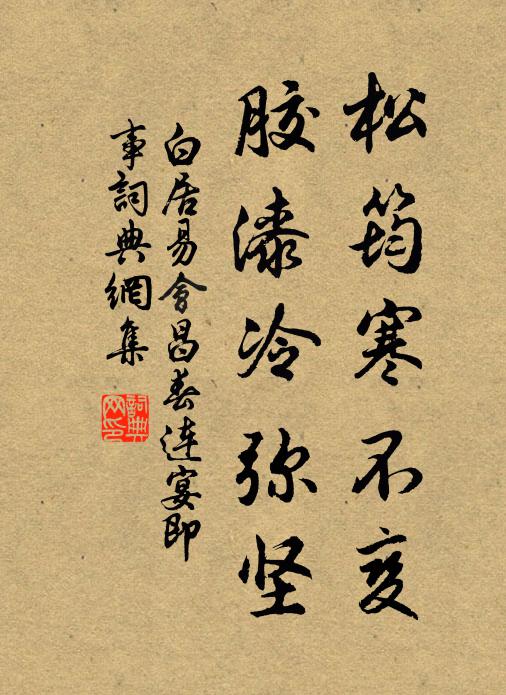 松筠寒不变
胶漆冷弥坚
白居易會昌春连宴即
事詞典網集
詞典
网印